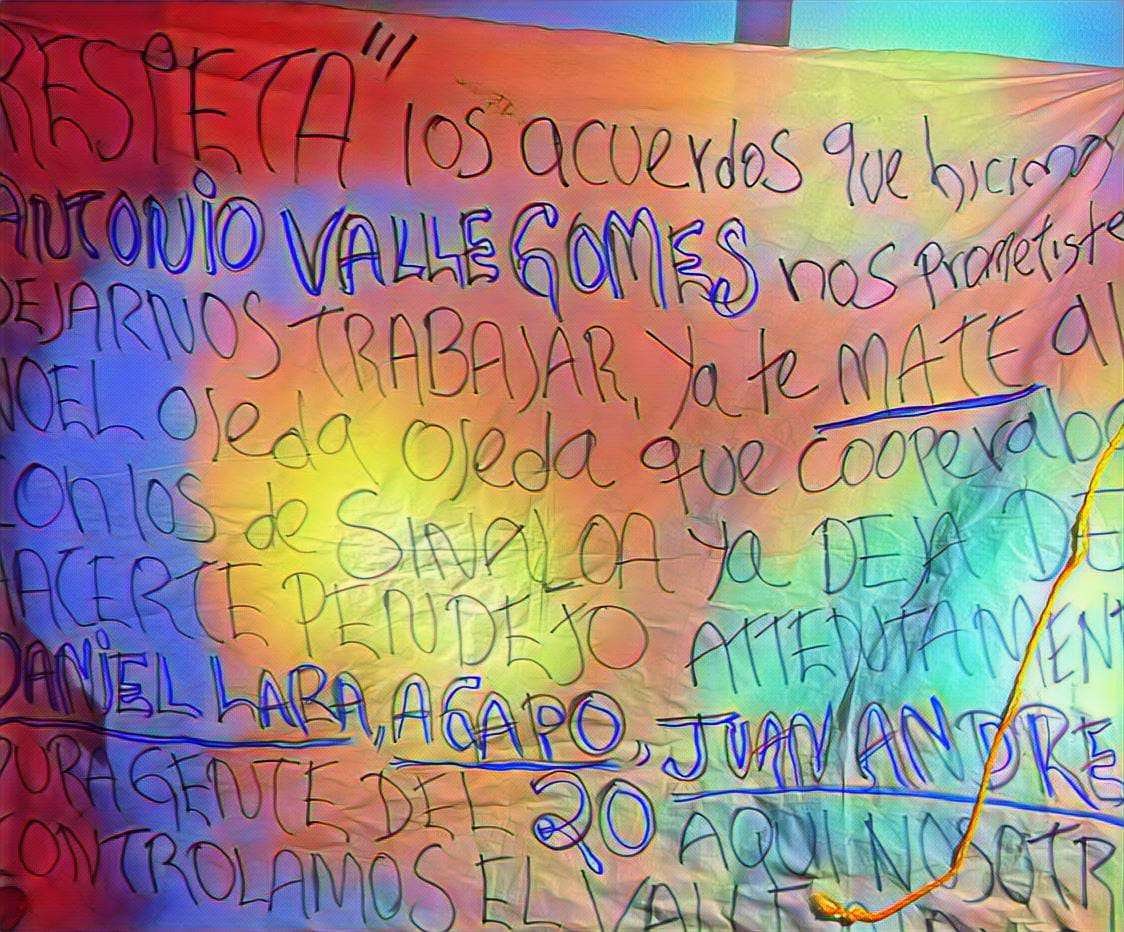 RESPETA" los acuerdos que hicimos
ANTONIO VALLE GOMES nos prometiste
DEJARNOS TRABAJAR, ya te MATE al
NOEL Ojeda Ojeda que cooperaba
con los de SINALOA ya DEJA DE
HACERTE PENDEJO ATTENTAMENT
DANIEL LARA, AGAPO, JUAN ANDRE
PURA GENTE DEL 20 AQUI NOSOTR
CONTROLAMOS EL VALLE